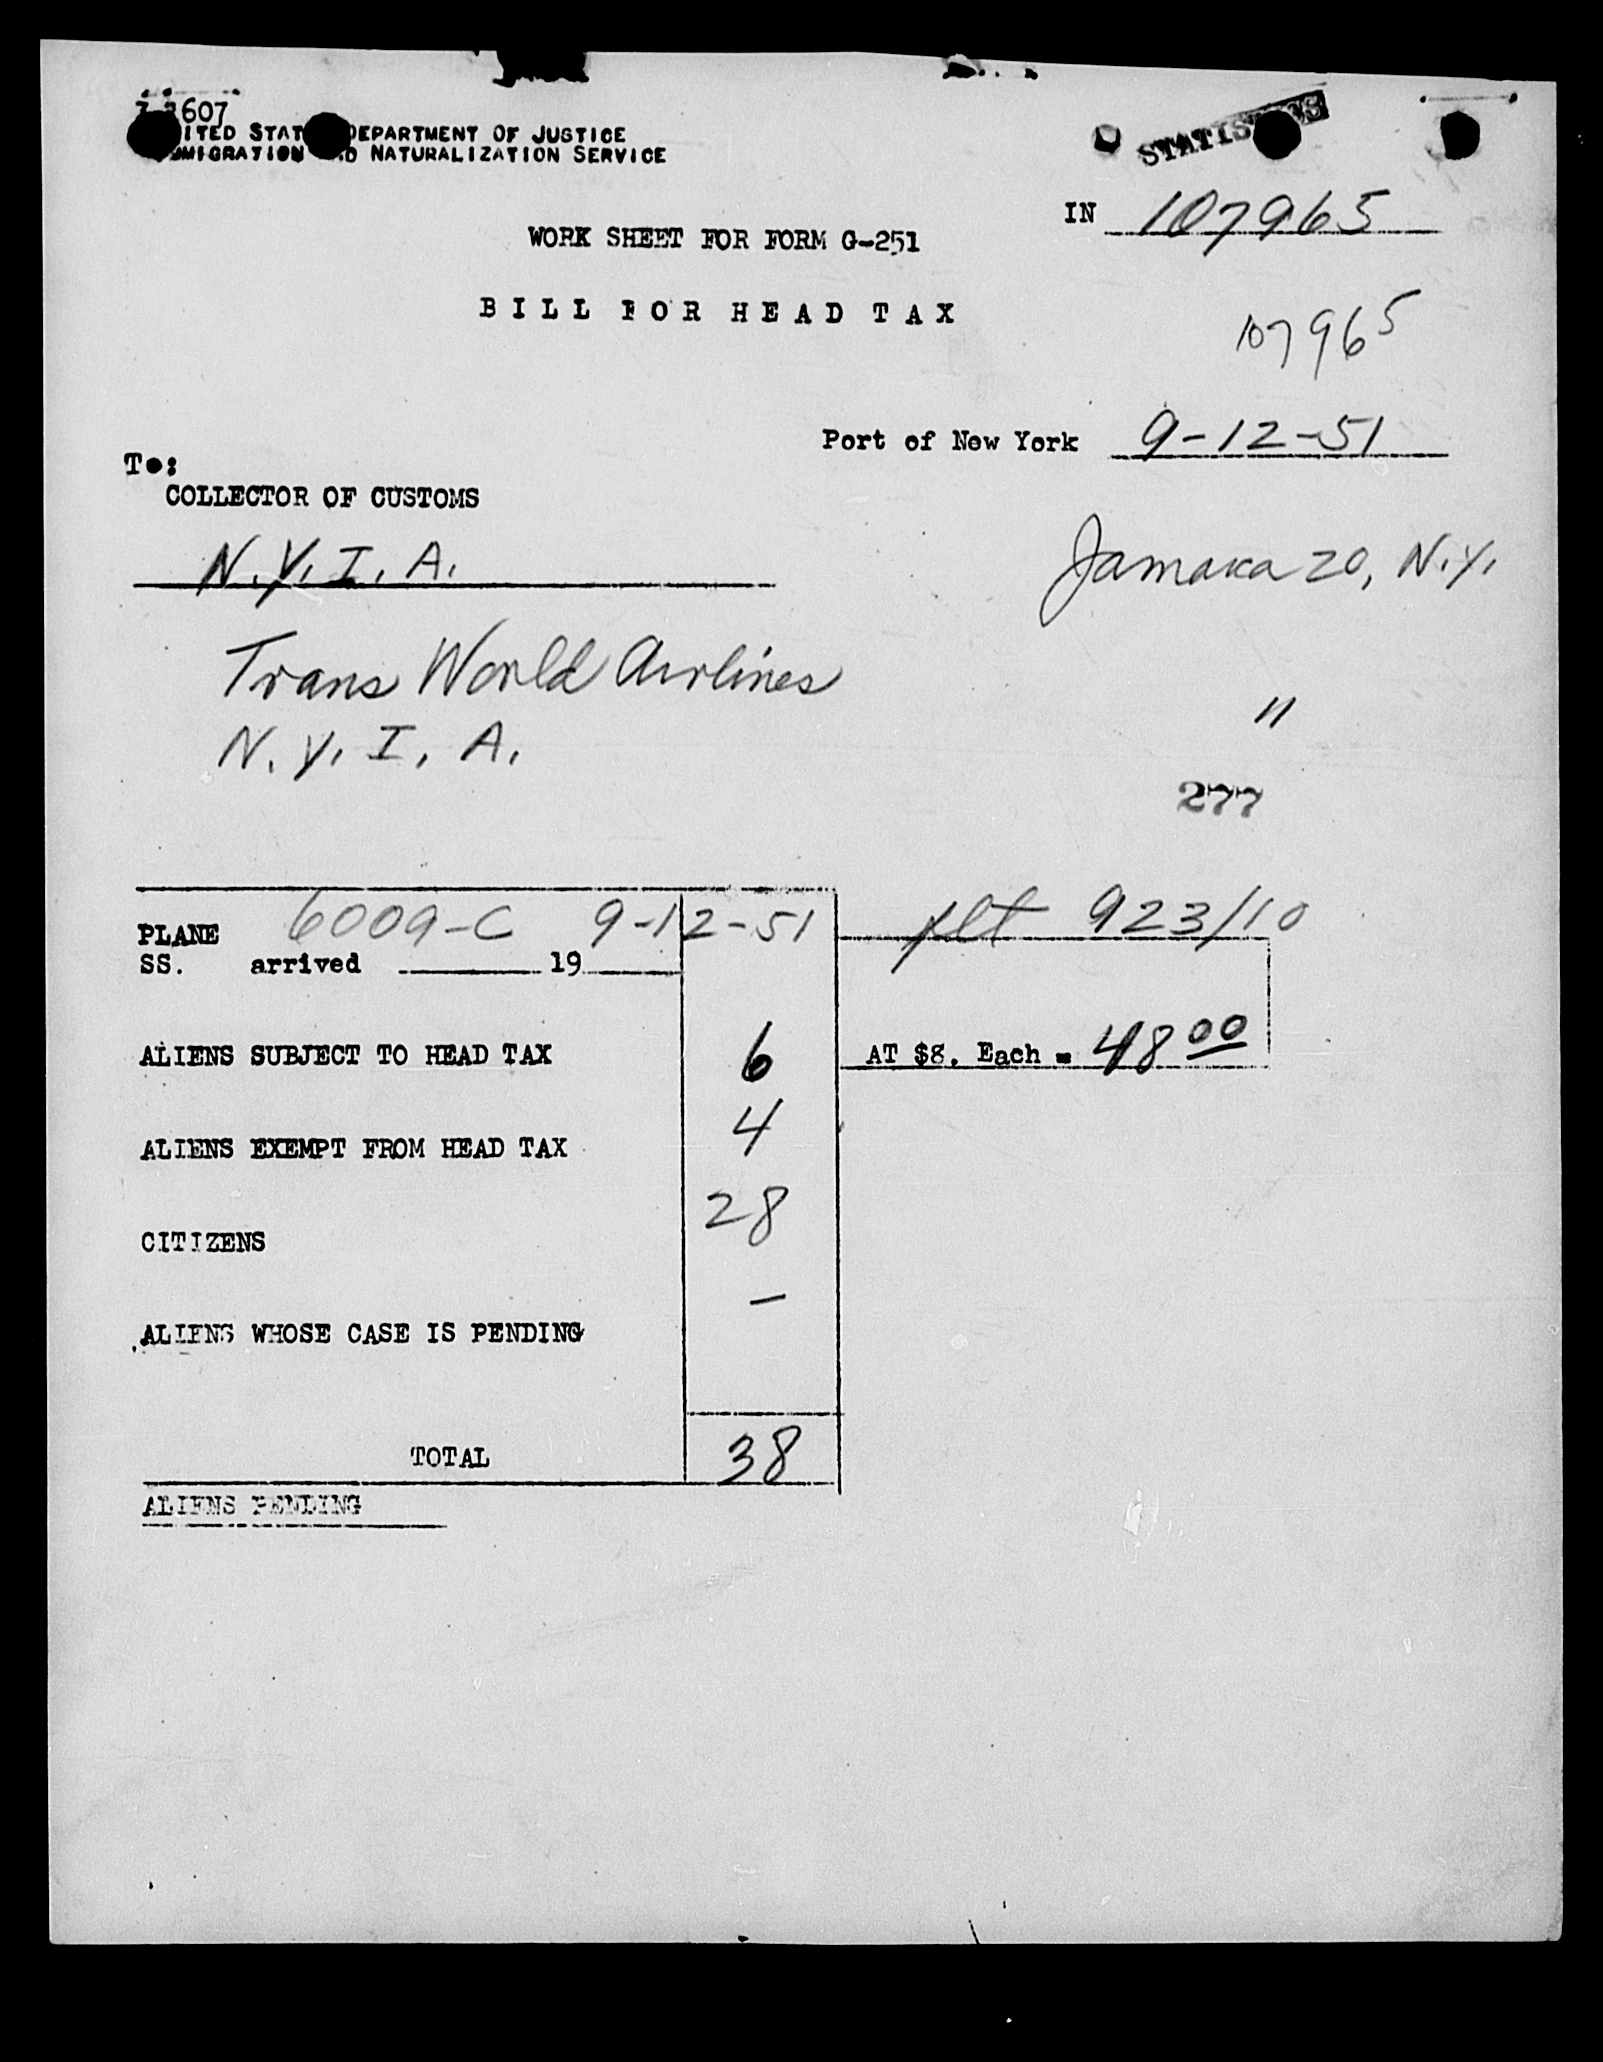 607
ITED STAT DEPARTMENT OF JUSTICE
MIGRATION D NATURALIZATION SERVICE
STATIS CS
IN 107965
WORK SHEET FOR FORM G-251
BILL FOR HEAD TAX
107965
Port of New York 9-12-51
To:
COLLECTOR OF CUSTOMS
N.Y.I.A.
Jamaica 20, N.Y.
Trans World Airlines
N.Y.I.A. "
277
PLANE 6009-C 9-12-51 flt 923/10
SS. arrived 19
ALIENS SUBJECT TO HEAD TAX 6 AT $8. Each = 48 00
ALIENS EXEMPT FROM HEAD TAX 4
CITIZENS 28
ALIENS WHOSE CASE IS PENDING -
TOTAL 38
ALIENS PENDING